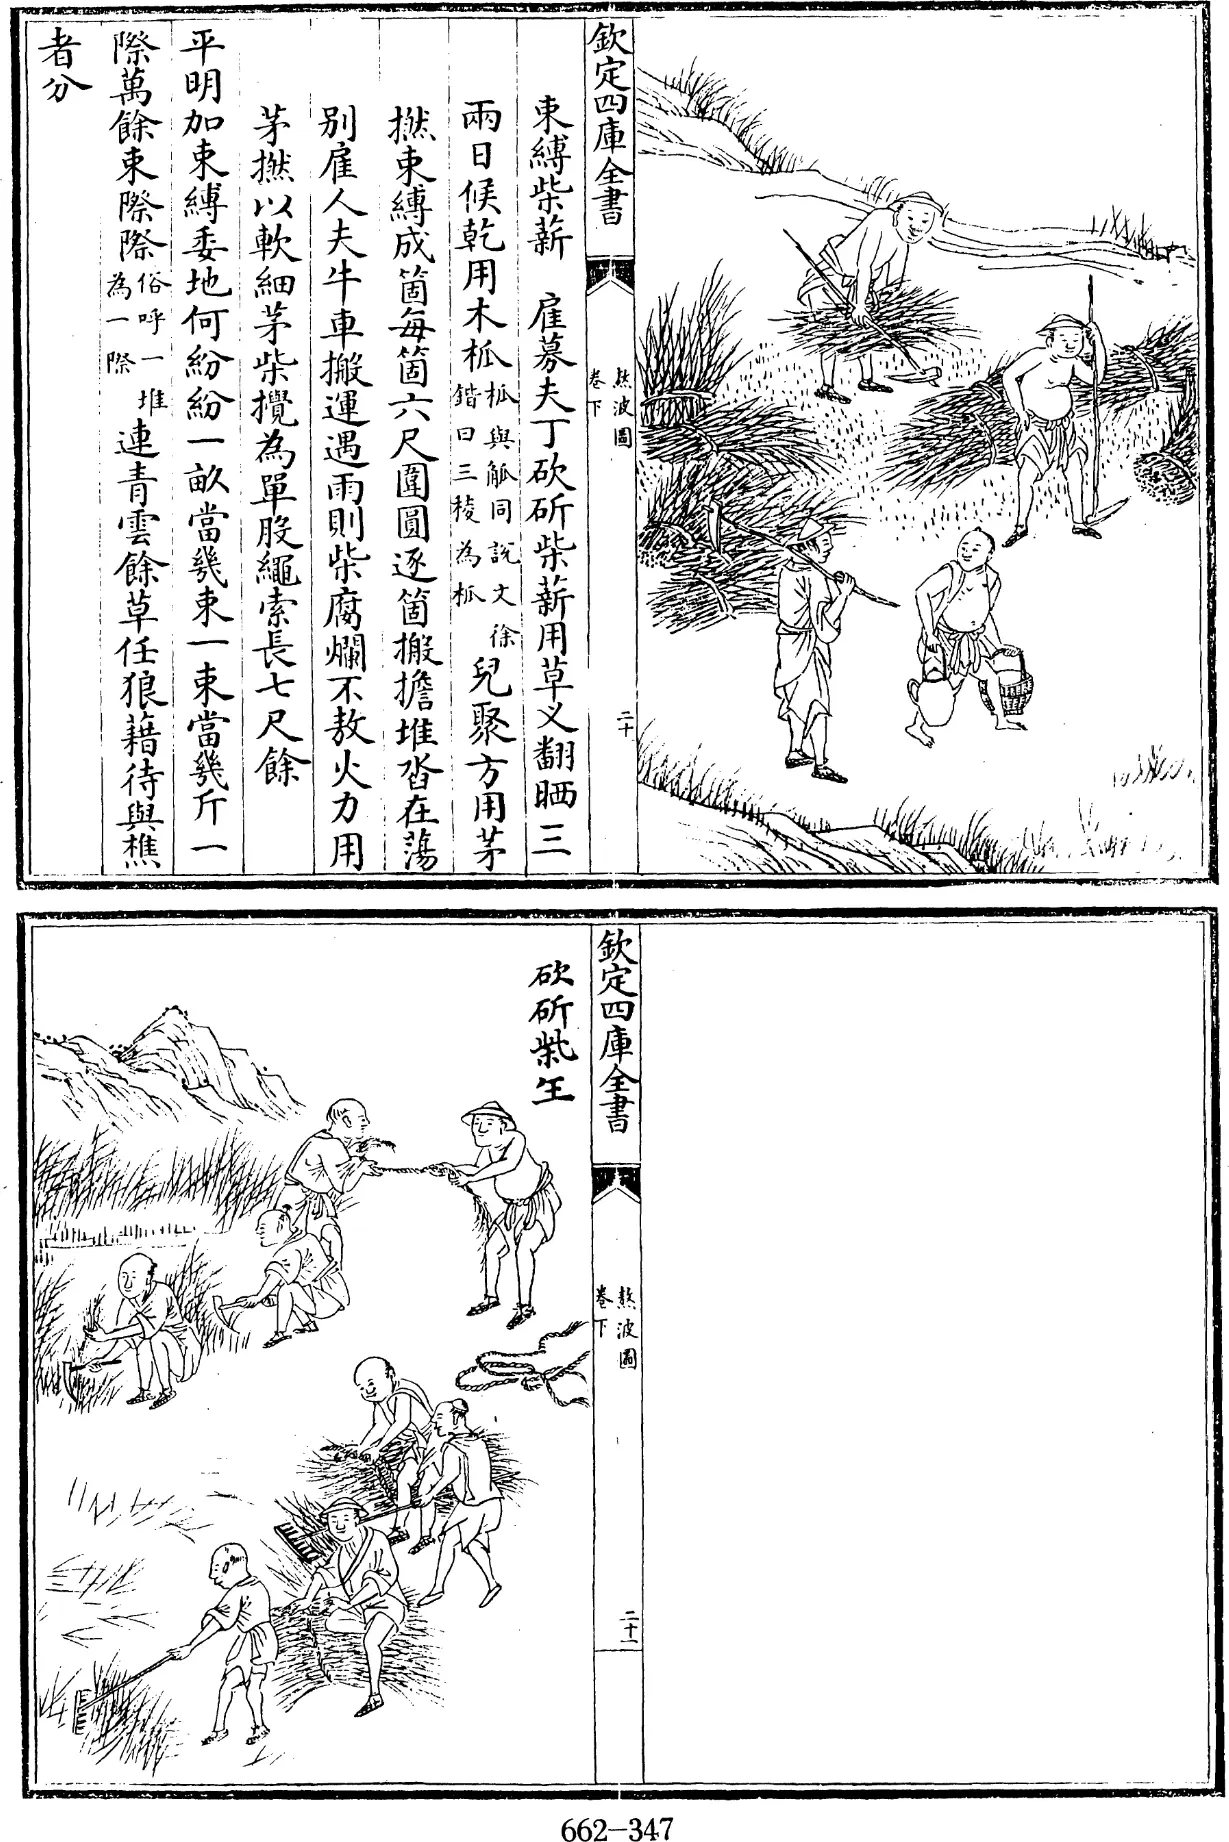 欽定四庫全書
熬波圖
卷下
二十
束縛柴薪　雇募夫丁砍斫柴薪用草义翻晒三
兩日候乾用木柧柧與觚同說文徐鍇曰三稜為柧兒聚方用茅
撚束縛成箇每箇六尺圍圓逐箇搬擔堆沓在蕩
别雇人夫牛車搬運遇雨則柴腐爛不敖火力用
茅撚以軟細茅柴攪為單股繩索長七尺餘
平明加束縛委地何紛紛一畝當幾束一束當幾斤一
際萬餘束際際俗呼一堆為一際連青雲餘草任狼藉待與樵
者分
欽定四庫全書
熬波圖
卷下
二十一
砍斫柴玍
662-347